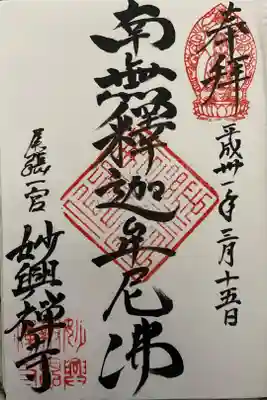 奉拝
平成卅一年三月十五日
南無釋迦牟尼佛
尾張一宮
妙興禅寺